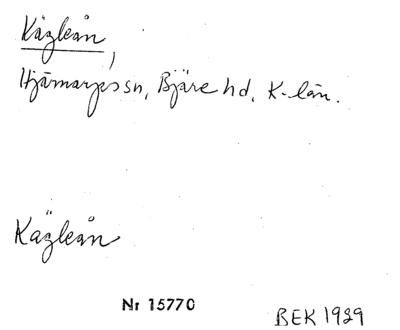 Kägleån,
Hjärnarps sn, Bjäre hd, K-län.
Kägleån
Nr 15770
BEK 1929